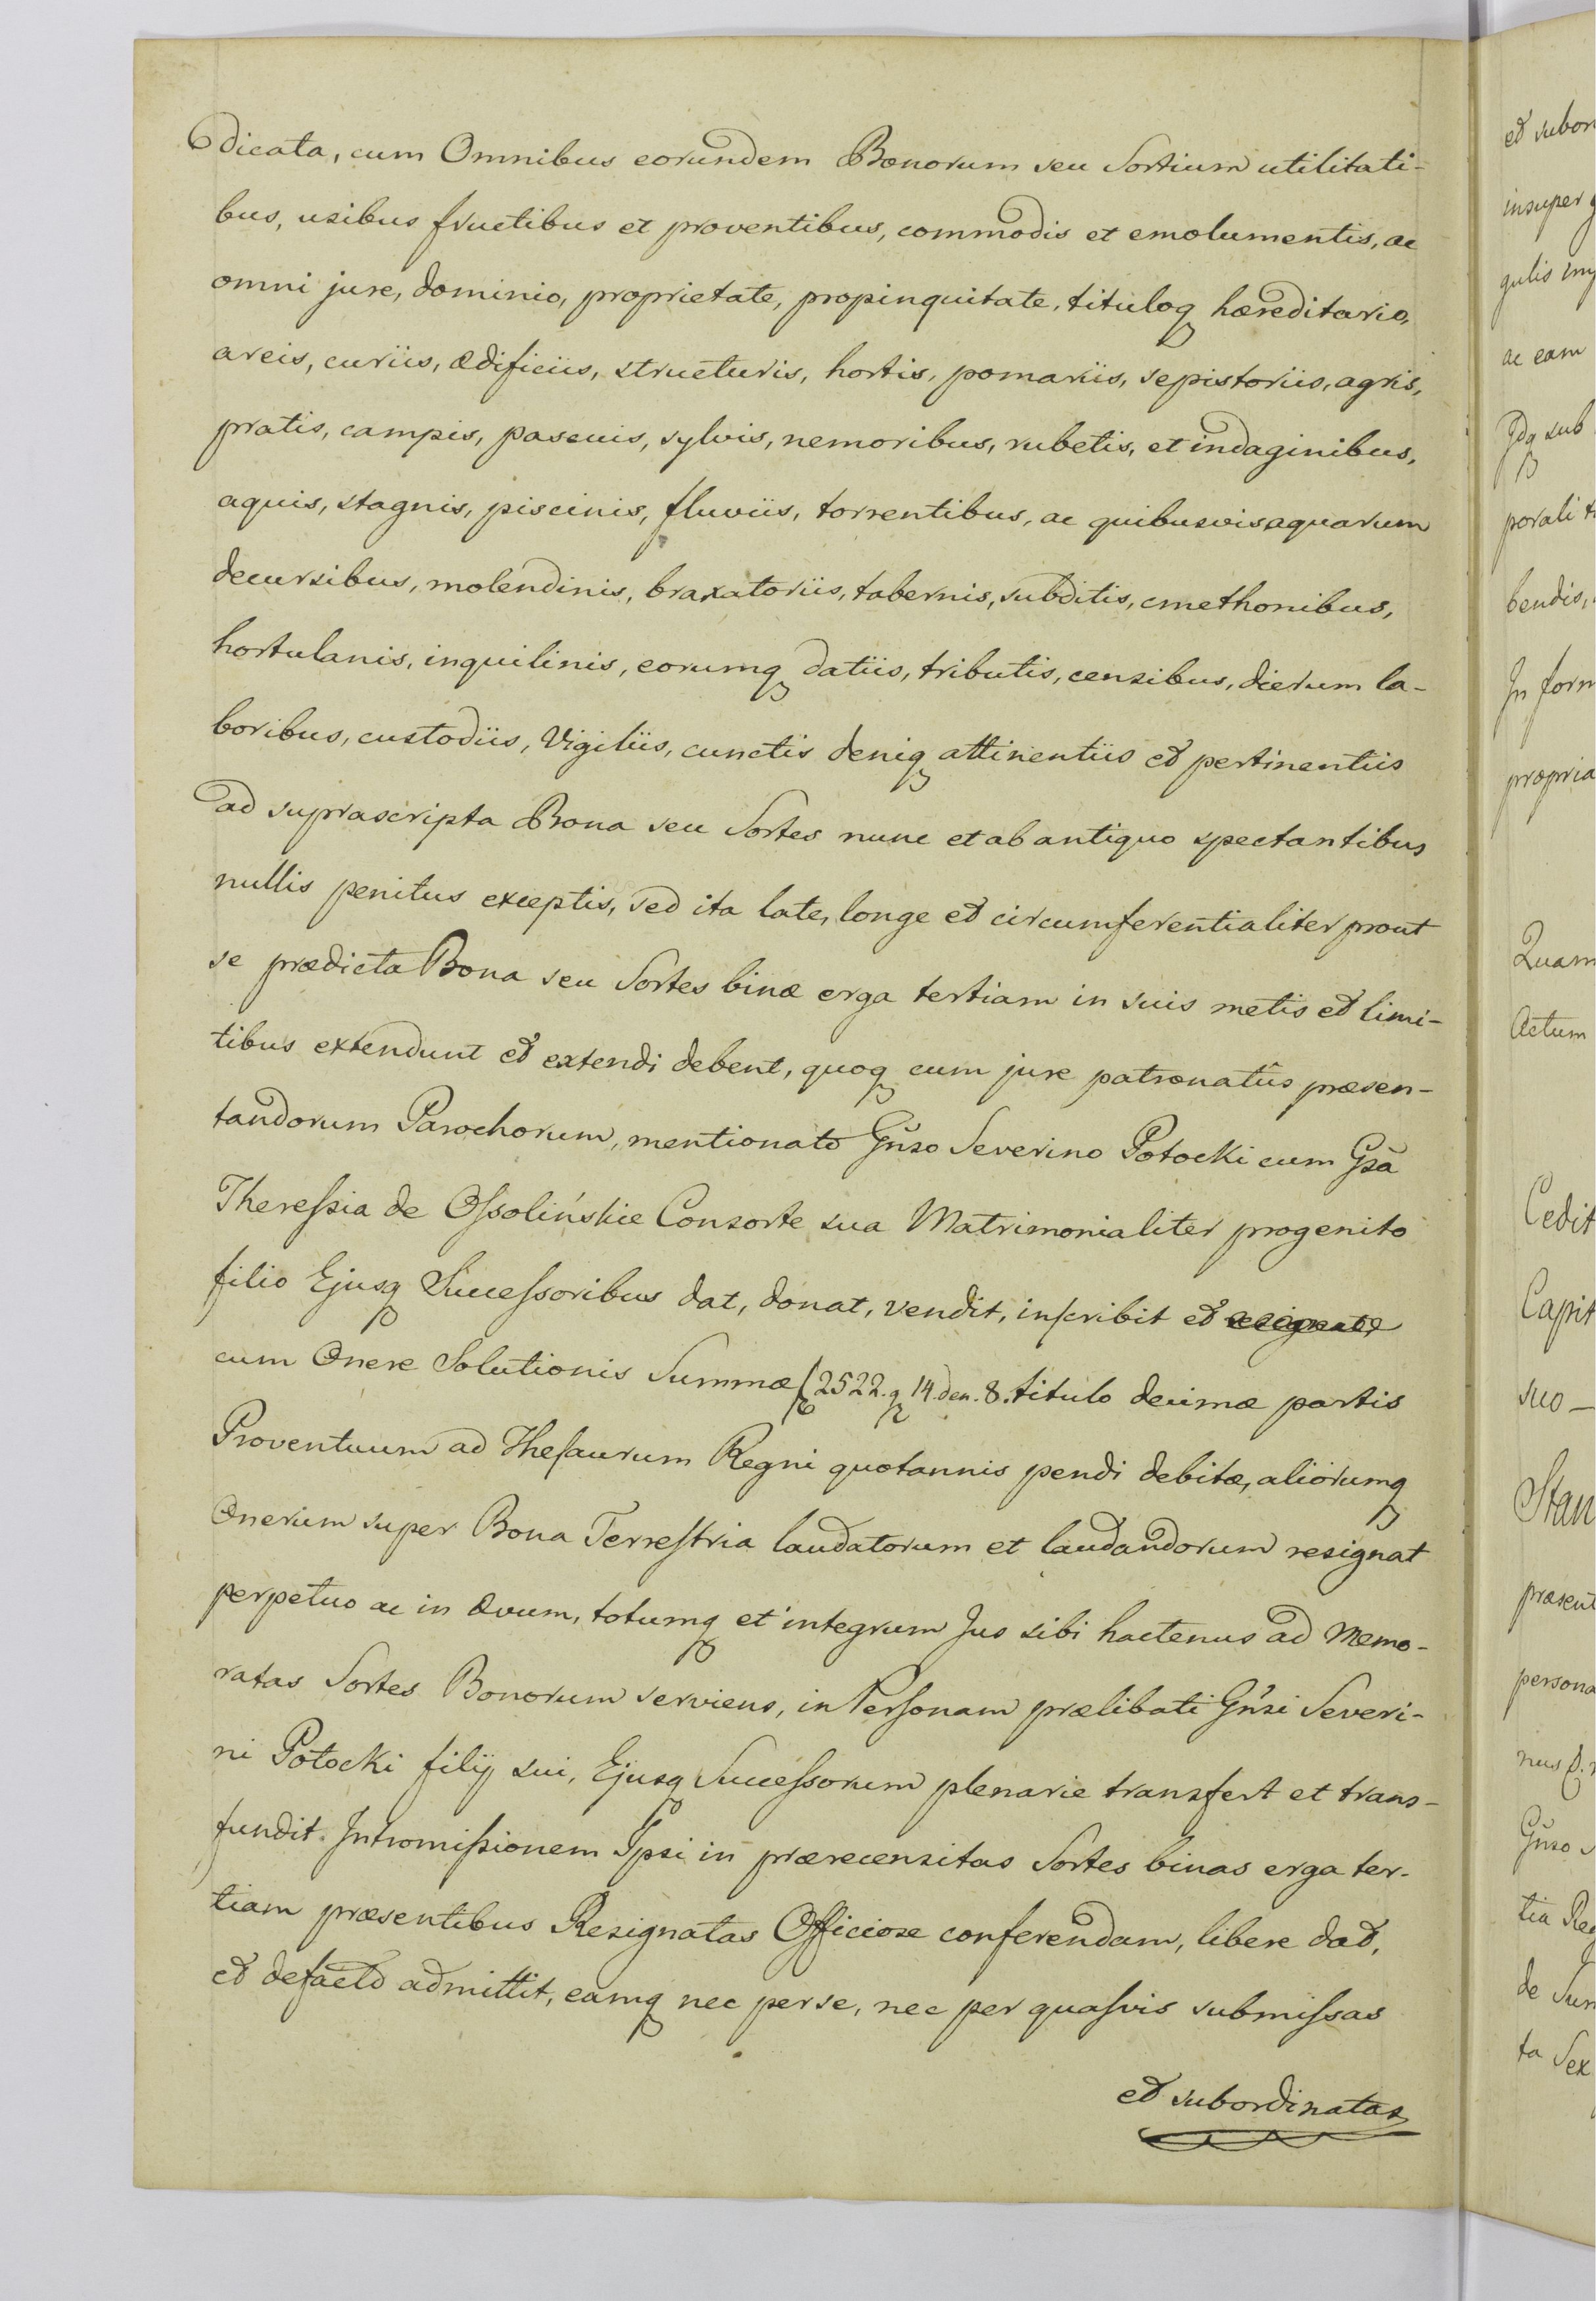 dicata, cum Omnibus eorundem Bonorum seu Sortium utilitati-
bus, usibus fructibus et proventibus, commodis et emolumentis, ac
omni jure, dominio, proprietate, propinquitate, tituloq hæreditario,
areis, curiis, ædificiis, structuris, hortis, pomariis, sepistoriis, agris,
pratis, campis, pascuis, sylvis, nemoribus, rubetis, et indaginibus,
aquis, stagnis, piscinis, fluviis, torrentibus, ac quibusvis aquarum
decursibus, molendinis, braxatoriis, tabernis, subditis, cmethonibus,
hortulanis, inquilinis, eorumq datiis, tributis, censibus, dierum la-
boribus, custodiis, Vigiliis, cunctis deniq attinentiis et pertinentiis
ad suprascripta Bona seu Sortes nunc et ab antiquo spectantibus
nullis penitus exceptis, sed ita late, longe et circumferentialiter prout
se prædicta Bona seu Sortes binæ erga tertiam in suis metis et limi-
tibus extendunt et extendi debent, quoq cum jure patronatûs præsen-
tandorum Parochorum, mentionato Gñso Severino Potocki cum Gsã
Theressia de Ossolińskie Consorte sua Matrimonialiter progenito
filio Ejusq Successoribus dat, donat, vendit, inscribit et
cum Onere Solutionis Summæ 2522. g 14. den. 8. titulo decimæ partis
Proventuum ad Thesaurum Regni quotannis pendi debitæ, aliorumq
Onerum super Bona Terrestria laudatorum et laudandorum resignat
perpetuo ac in ævum, totumq et integrum Jus sibi hactenus ad Memo-
ratas Sortes Bonorum serviens, in Personam prælibati Gñsi Severi-
ni Potocki filij sui, Ejusq Successorum plenarie transfert et trans-
fundit. Intromissionem Ipsi in prærecensitas Sortes binas erga ter-
tiam præsentibus Resignatas Officiose conferendam, libere dat,
et defacto admittit, eamq nec per se, nec per quasvis submissas
et subordinatas
et subor
insuper
gulis
ac eam
Idq sub
porali
bendis,
In form
propria
Quam
Actum
Cedit
Capit
suo
Stan
præsent
persona
nus
Gñso
tia Reg
de Sum
ta Sex